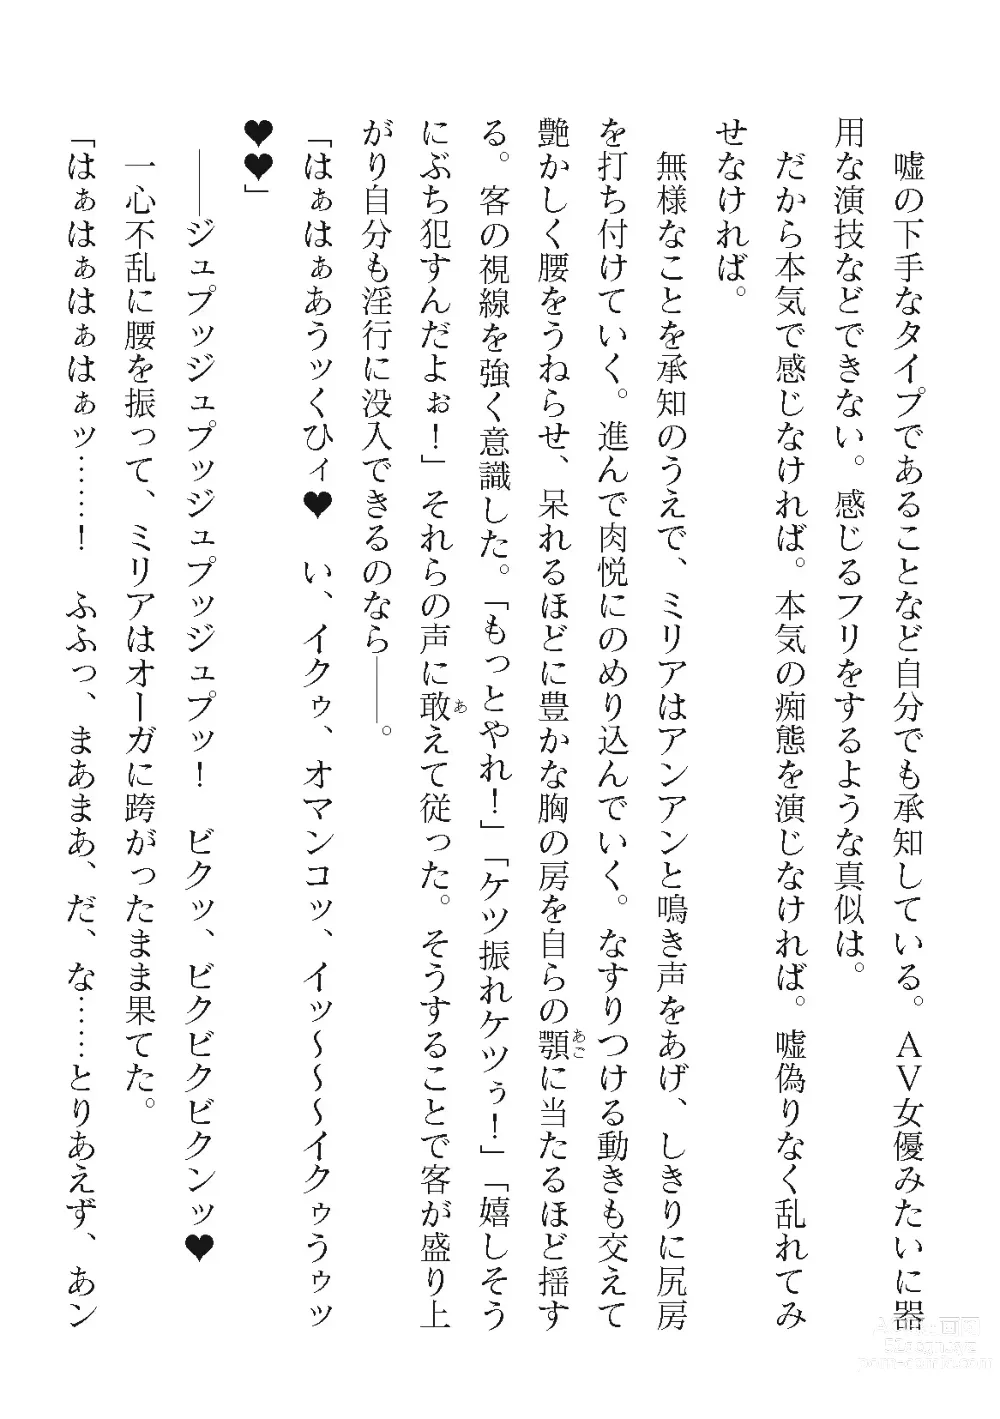 嘘の下手なタイプであることなど自分でも承知している。ＡＶ女優みたいに器
用な演技などできない。感じるフリをするような真似は。
だから本気で感じなければ。本気の痴態を演じなければ。嘘偽りなく乱れてみ
せなければ。
無様なことを承知のうえで、ミリアはアンアンと鳴き声をあげ、しきりに尻房
を打ち付けていく。進んで肉悦にのめり込んでいく。なすりつける動きも交えて
艶かしく腰をうねらせ、呆れるほどに豊かな胸の房を自らの顎に当たるほど揺す
る。客の視線を強く意識した。「もっとやれ！」「ケツ振れケツぅ！」「嬉しそう
にぶち犯すんだよぉ！」それらの声に敢えて従った。そうすることで客が盛り上
がり自分も淫行に没入できるのなら――。
「はぁはぁあうッくひィ♥　い、イクゥ、オマンコッ、イッ～～～イクゥうゥッ
♥♥」
――ジュプッジュプッジュプッジュプッ！　ビクッ、ビクビクビクンッ♥
一心不乱に腰を振って、ミリアはオーガに跨がったまま果てた。
「はぁはぁはぁはぁッ……！　ふふっ、まあまあ、だ、な……とりあえず、あン